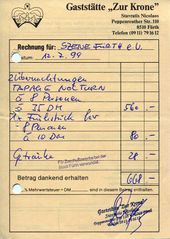 Gaststätte „Zur Krone"
Stavratis Nicolaos
Peppenreuther Str. 110
8510 Fürth
Telefon (09 11) 79 16 12
Rechnung für: SZENE FÜRTH e.V.
Datum: 12.7.99
2 Übernachtungen
8 Personen
à 35 DM 560.-
1x Frühstück für
8 Personen
à 10 Dm 80.-
Getränke 28.-
668.-
Betrag dankend erhalten
% Mehrwertsteuer = DM sind in diesem Betrag enthalten